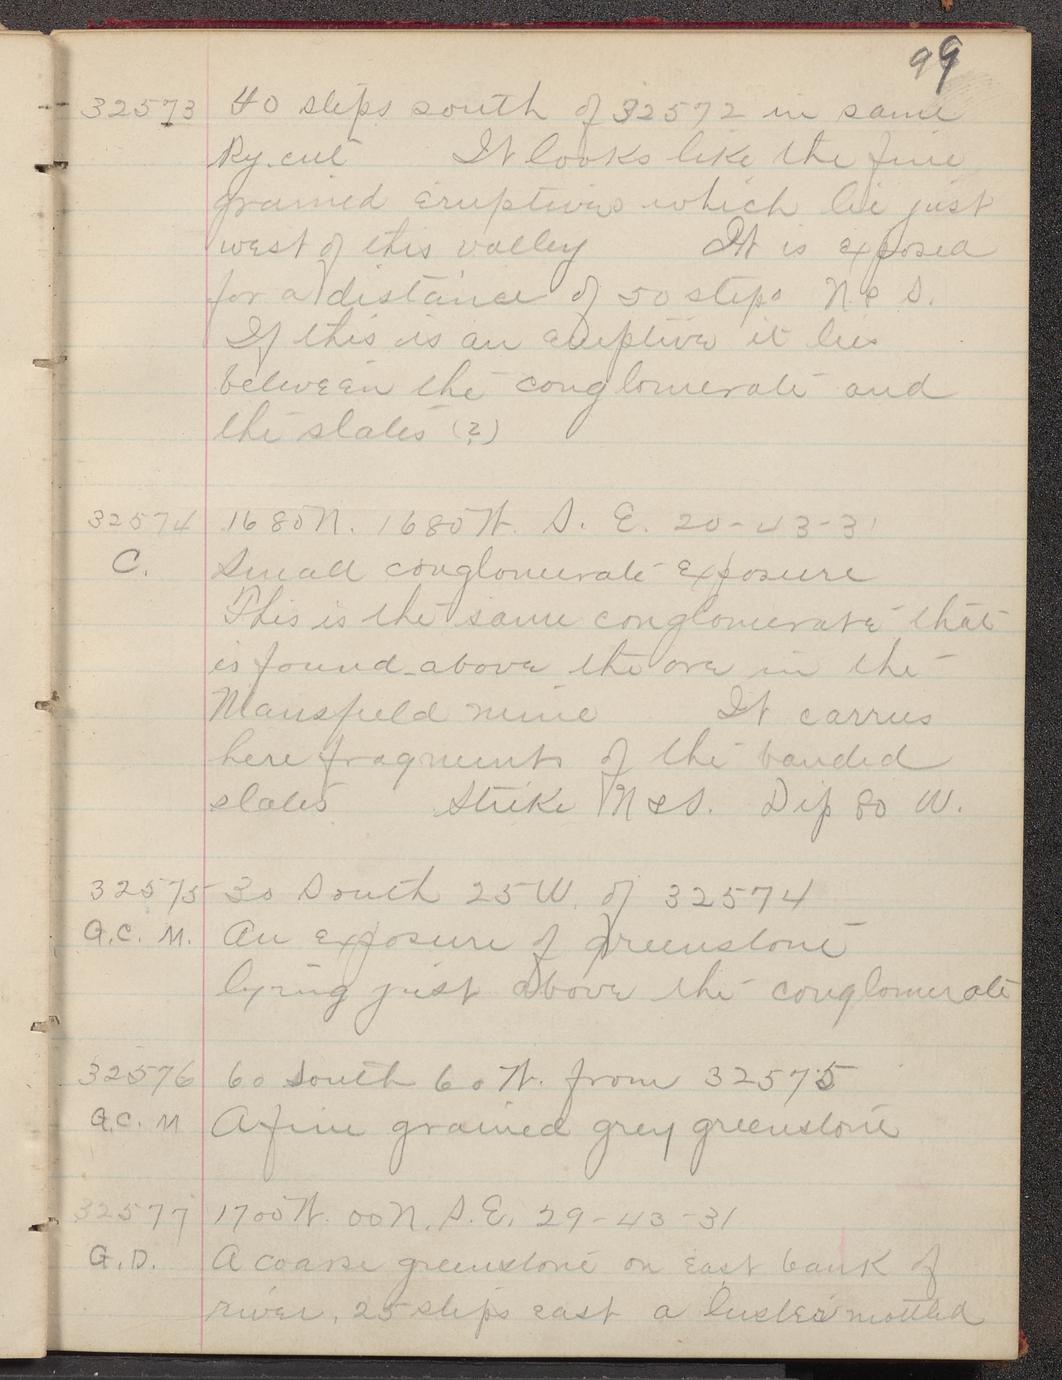 99
32573 40 steps south of 32572 in same
Ry. cut It looks like the fine
grained eruptives which lie just
west of this valley It is exposed
for a distance of 50 steps N. & S.
If this is an eruptive it lies
between the conglomerate and
the slates (?)
32574 1680 N. 1680 W. S. E. 20-43-31
C. Small conglomerate exposure
This is the same conglomerate that
is found above the ore in the
Mansfield mine It carries
here fragments of the banded
slates Strike N & S. Dip 80 W.
32575 30 South 25 W. of 32574
G.C. M. An exposure of greenstone
lying just above the conglomerate
32576 60 South 60 W. from 32575
G.C. M A fine grained grey greenstone
32577 1700 W. 00 N. S.E. 29-43-31
G.D. A coarse greenstone on east bank of
river, 25 steps east a luster mottled